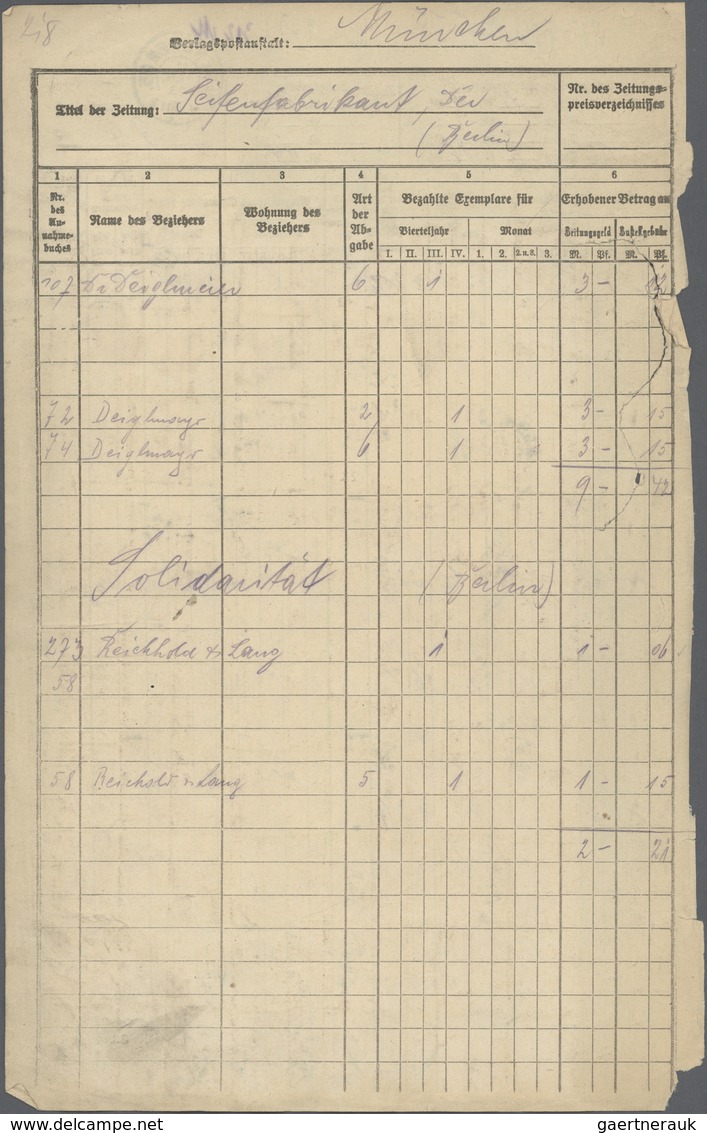 218
Verlagspostanstalt: München
Titel der Zeitung: Seifenfabrikant, Der
(Berlin)
Nr. des Zeitungs-
preisverzeichnisses
1 2 3 4 5 6
Nr. des An-nahme-buches Name des Beziehers Wohnung des Beziehers Art der Ab-gabe Bezahlte Exemplare für Erhobener Betrag an
Vierteljahr Monat Zeitungsgeld Bestellgebühr
I. II. III. IV. 1. 2. 2.u.3. 3. M. Pf. M. Pf.
107 Dr Deiglmeier 6 1 3 - 12
72 Deiglmayr 2 1 3 - 15
74 Deiglmayr 6 1 3 - 15
9 - 42
Solidarität (Berlin)
273 Reichhold & Lang 1 1 - 06
58
58 Reichold & Lang 5 1 1 - 15
2 - 21
gaertnerauk